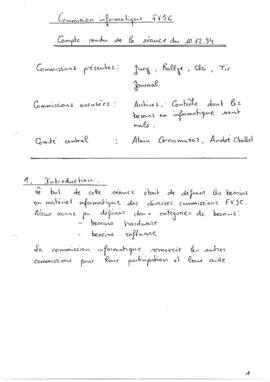 Commission informatique FVJC
Compte rendu de la séance du 10.12.94
Commissions présentes : Jury, Rallye, Ski, Tir
Journal
Commissions excusées : Archives, Contrôle dont les
besoins en informatique sont
nuls.
Comité central : Alain Cornamusaz, André Challet
1. Introduction
Le but de cette séance était de définir les besoins
en matériel informatique des diverses commissions FVJC.
Nous avons pu définir deux catégories de besoins:
- besoins hardware
- besoins software
La commission informatique remercie les autres
commissions pour leur participation et leur aide.
1